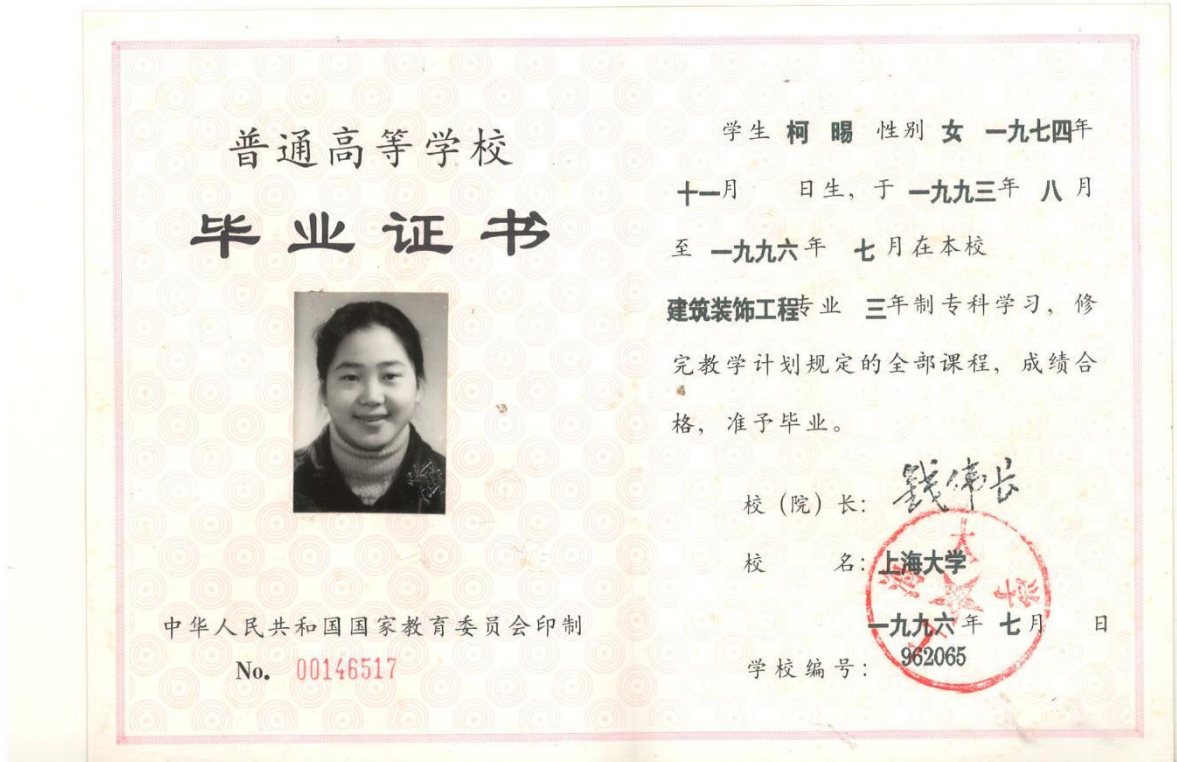 普通高等学校
毕业证书
中华人民共和国国家教育委员会印制
No. 00146517
学生 柯 晹 性别 女 一九七四年
十一月 日生，于 一九九三年 八 月
至 一九九六年 七 月在本校
建筑装饰工程专业 三年制专科学习，修
完教学计划规定的全部课程，成绩合
格，准予毕业。
校（院）长：钱伟长
校 名：上海大学
一九九六年 七月 日
学校编号：962065
上海大学